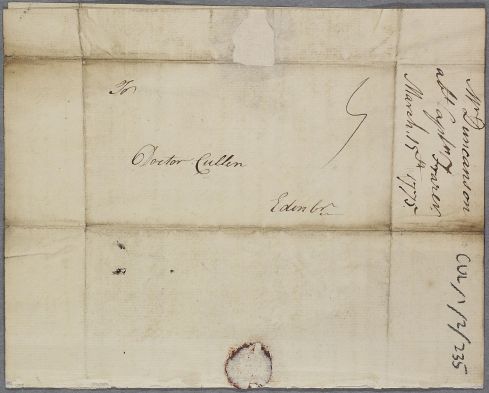 To
Doctor Cullen
Edinbr.
Mr Duncanson
abt Captn Frazer
March 15th 1775
CUL/1/2/235